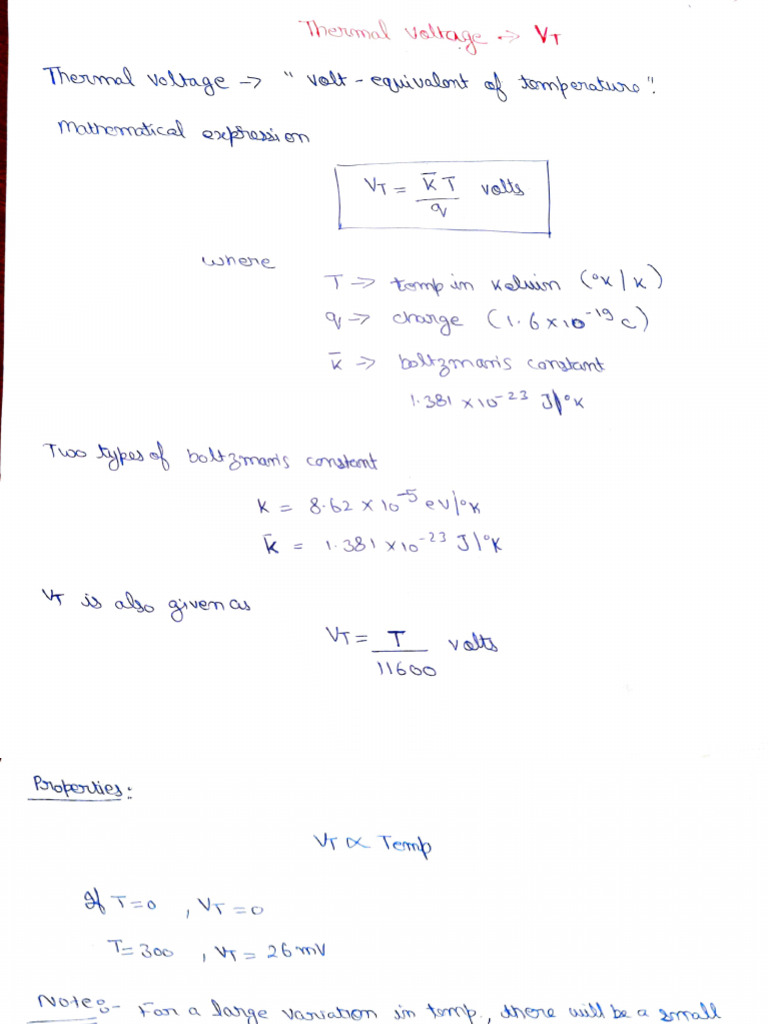 Thermal voltage → VT
Thermal voltage → "volt-equivalent of temperature".
Mathematical expression
VT = k̄ T / q volts
where
T → temp in kelvin (°K / K)
q → charge (1.6 × 10⁻¹⁹ C)
k̄ → boltzman's constant
1.381 × 10⁻²³ J/°K
Two types of boltzman's constant
K = 8.62 × 10⁻⁵ eV/°K
k̄ = 1.381 × 10⁻²³ J/°K
VT is also given as
VT = T / 11600 volts
Properties:
VT ∝ Temp
If T=0 , VT = 0
T= 300 , VT = 26 mV
Note:- For a large variation in temp., there will be a small